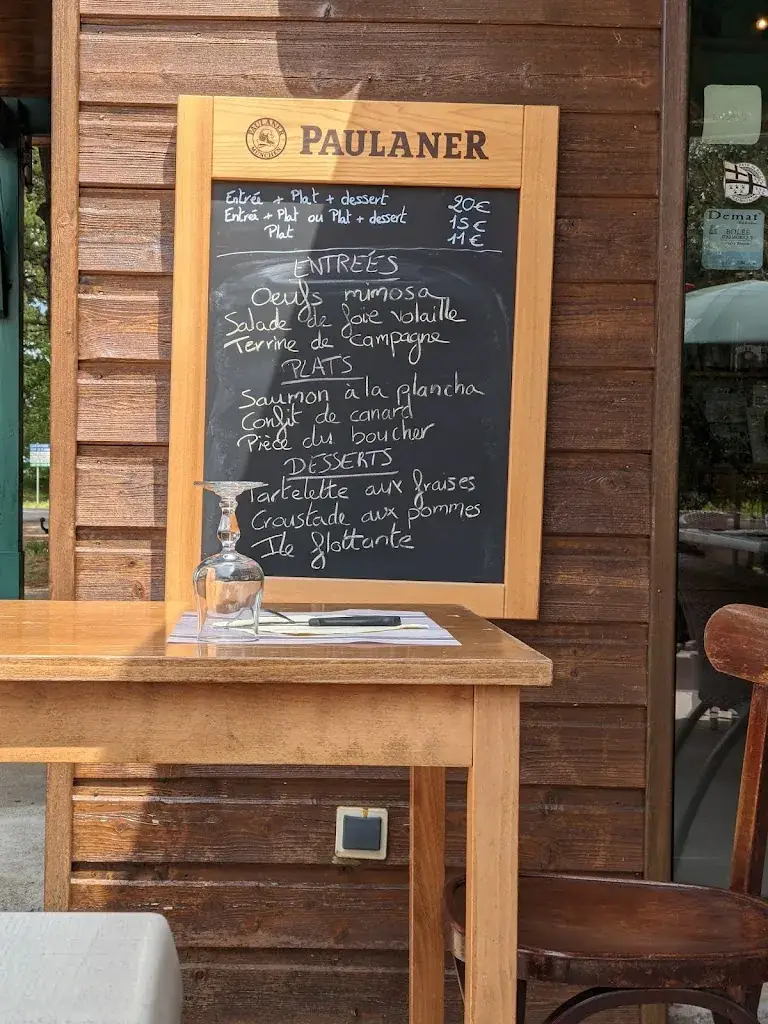 PAULANER
MÜNCHEN
PAULANER
Entrée + Plat + dessert 20€
Entrée + Plat ou Plat + dessert 15€
Plat 11€
ENTREÉS
Oeufs mimosa
Salade de foie volaille
Terrine de campagne
PLATS
Saumon à la plancha
Confit de canard
Pièce du boucher
DESSERTS
Tartelette aux fraises
Croustade aux pommes
Ile flottante
Demat